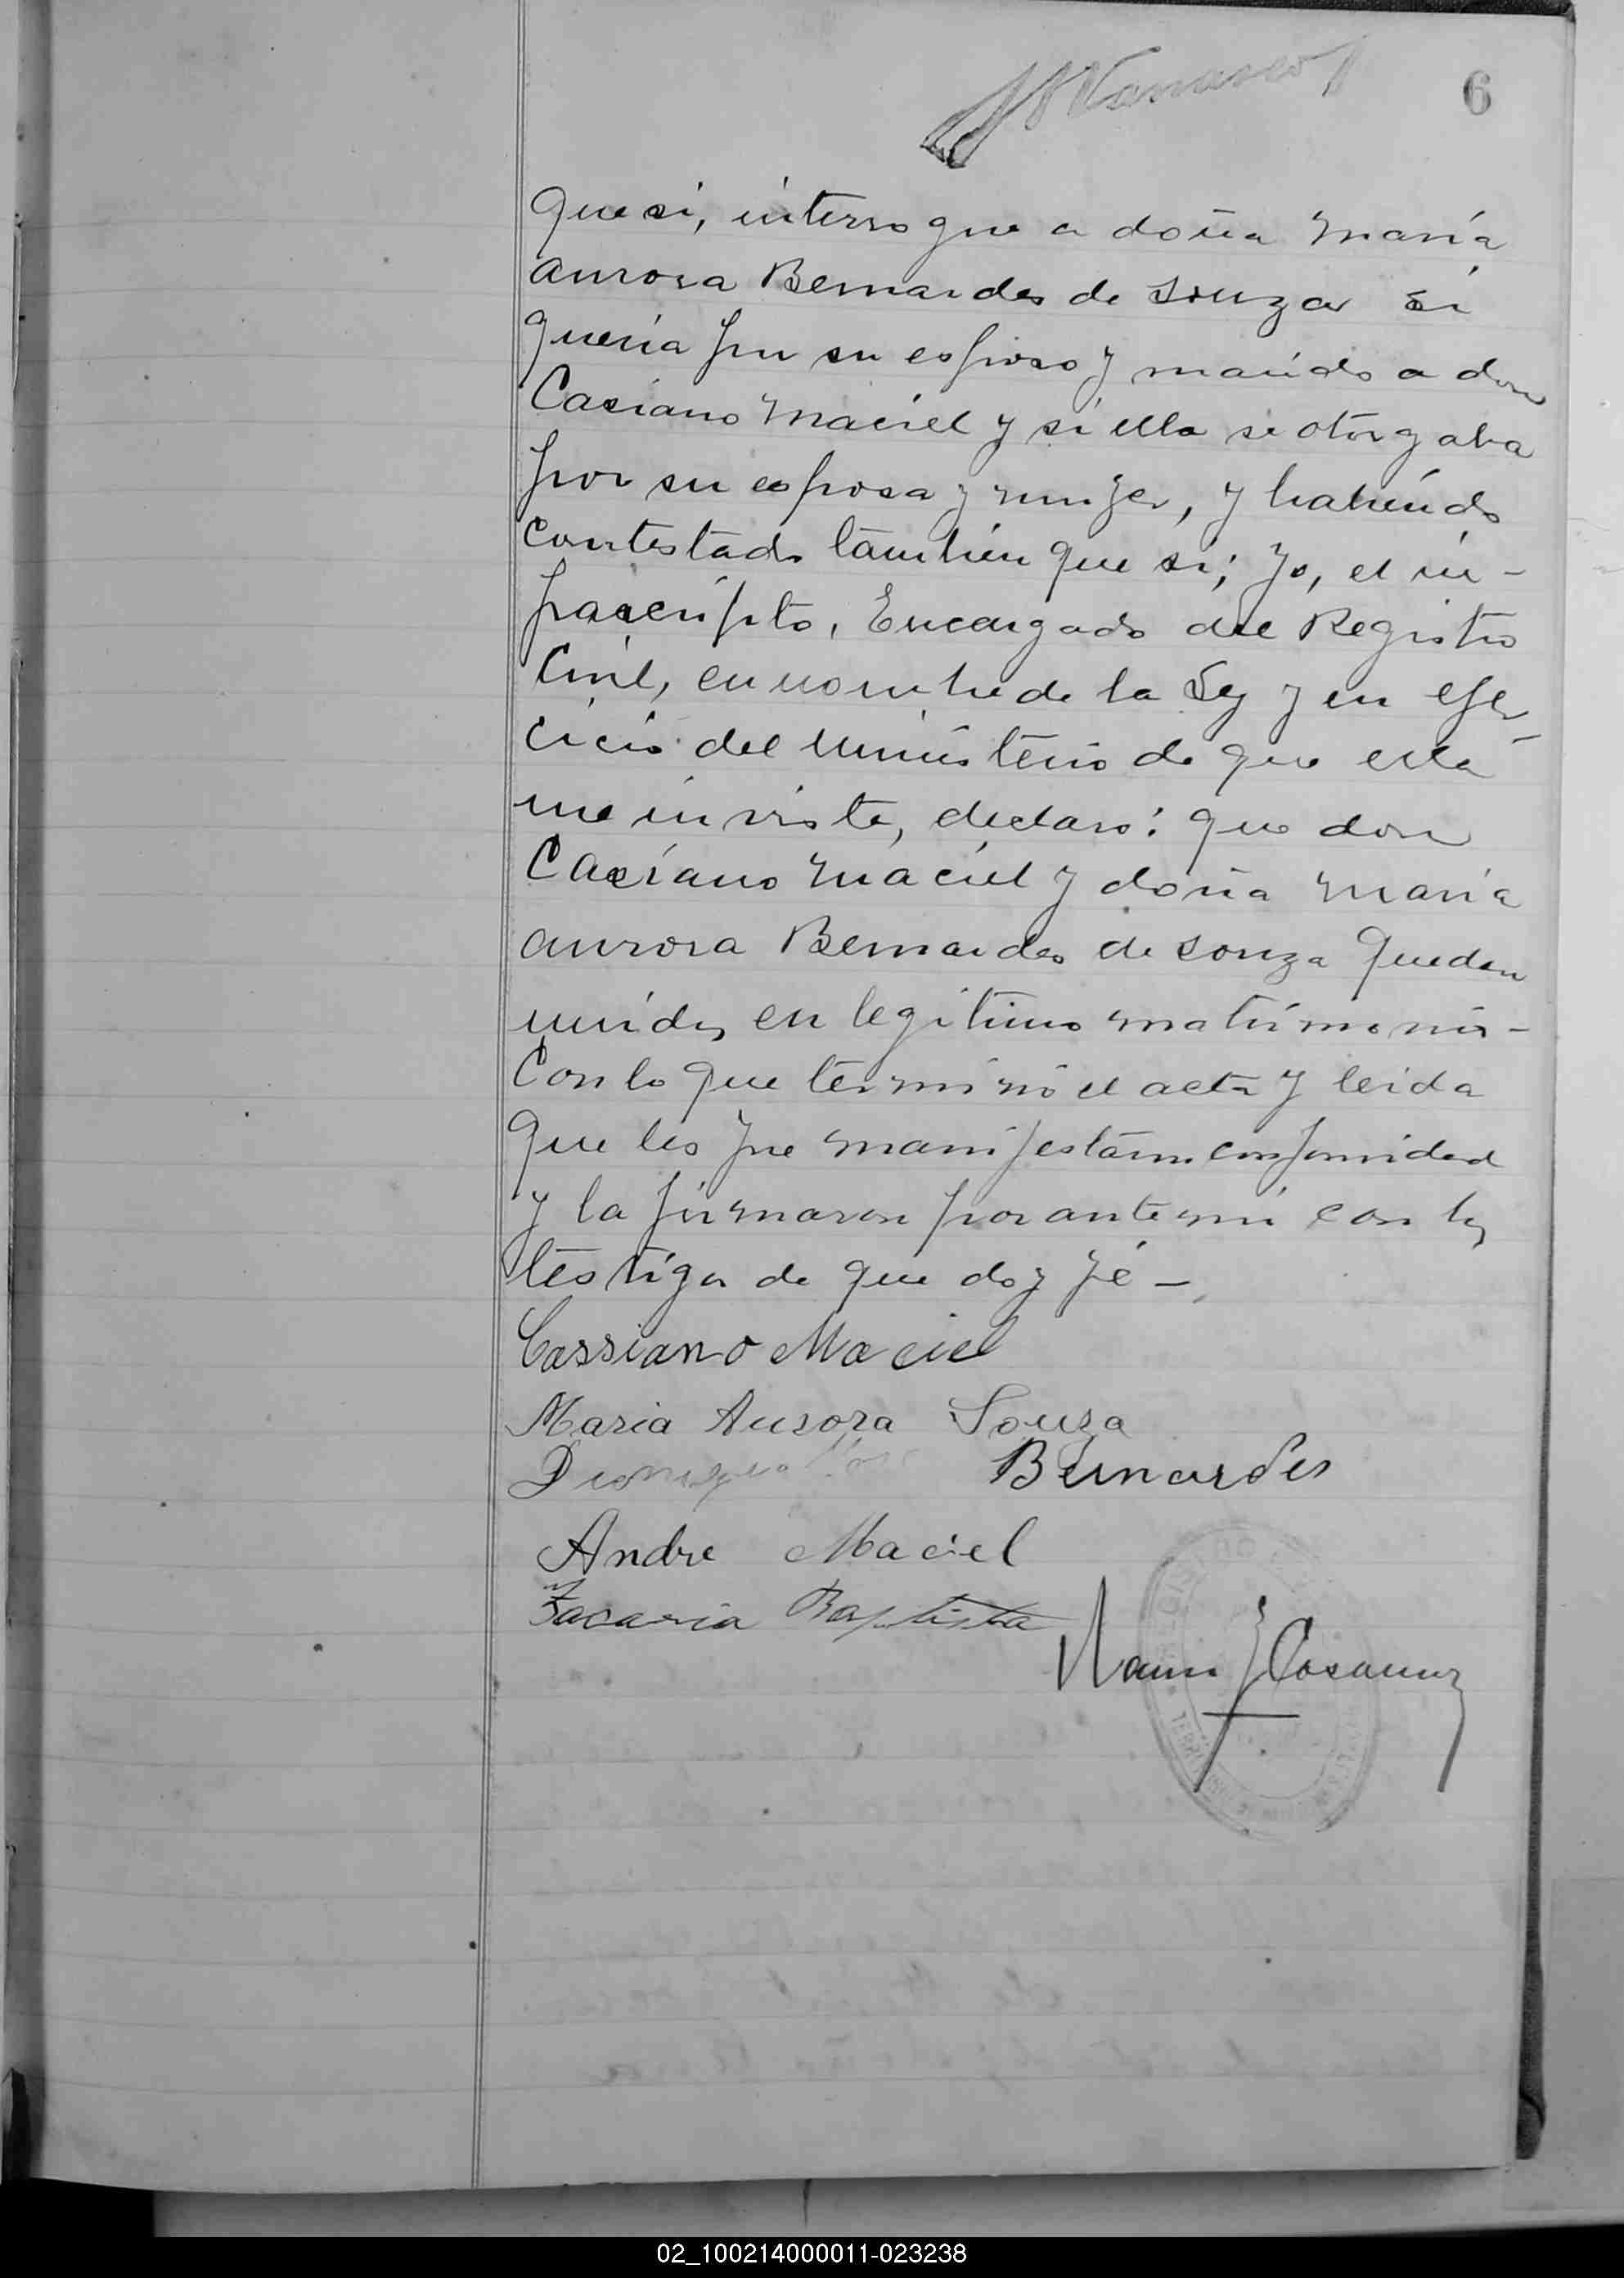 6
que si, interrogue a doña María
aurora Bernardes de Souza si
quería por su esposo y marido a don
Casiano Maciel y si ella se otorgaba
por su esposa y mujer, y habiendo
contestado también que si; Yo, el in-
frascripto, Encargado del Registro
Civil, en nombre de la Ley y en ejer-
cicio del ministerio de que esta
me inviste, declaro: que don
Casiano Maciel y doña María
aurora Bernardes de Souza quedan
unidos en legitimo matrimonio-
Con lo que terminó el acta y leida
que les fue manifestaron conformidad
y la firmaron por ante mi con los
testigos de que doy fé-
Cassiano Maciel
Maria Aurora Souza
Bernardes
Andre Maciel
Zacaria Baptista
02_100214000011-023238